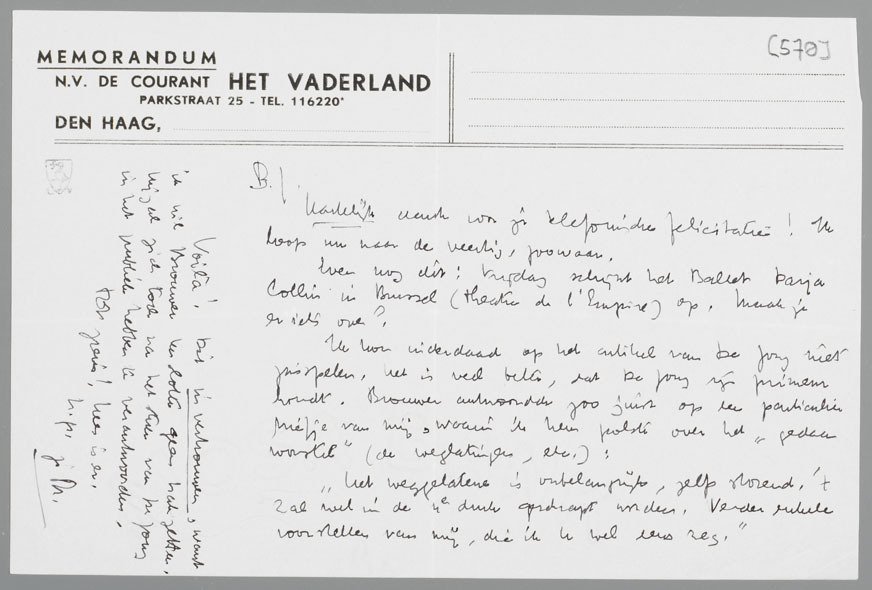 [570]
MEMORANDUM
N.V. DE COURANT HET VADERLAND
PARKSTRAAT 25 - TEL. 116220*
DEN HAAG,
B. J.
Hartelijk dank voor je telefonische felicitatie! Ik
loop nu naar de veertig, jowaar.
Even nog dit: Vrijdag schijnt het Ballet Darja
Collin in Brussel (theatre de l'Empire) op. Maak je
er iets over?
Ik kon inderdaad op het artikel van De Jong niet
, het is veel beter, dat De Jong zijn primeur
houdt. Brouwer antwoordde zoo juist op een particulier
briefje van mij, waarin ik hem polste over het „gedaan
worstel" (de weglatingen, etc.):
„Het weggelatene is onbelangrijk, zelfs storend. 't
Zal wel in de 4e druk geschrapt worden. Verder enkele
voorstellen van mij, die ik je wel eens zeg."
Voilà! Dit in vertrouwen, want
ik wil Brouwer ten slotte geen hak zetten,
hij zal zich toch na het stuk van De Jong
in het publiek hebben te verantwoorden.
Tot ziens! Kees is er.
h.gr. je M.